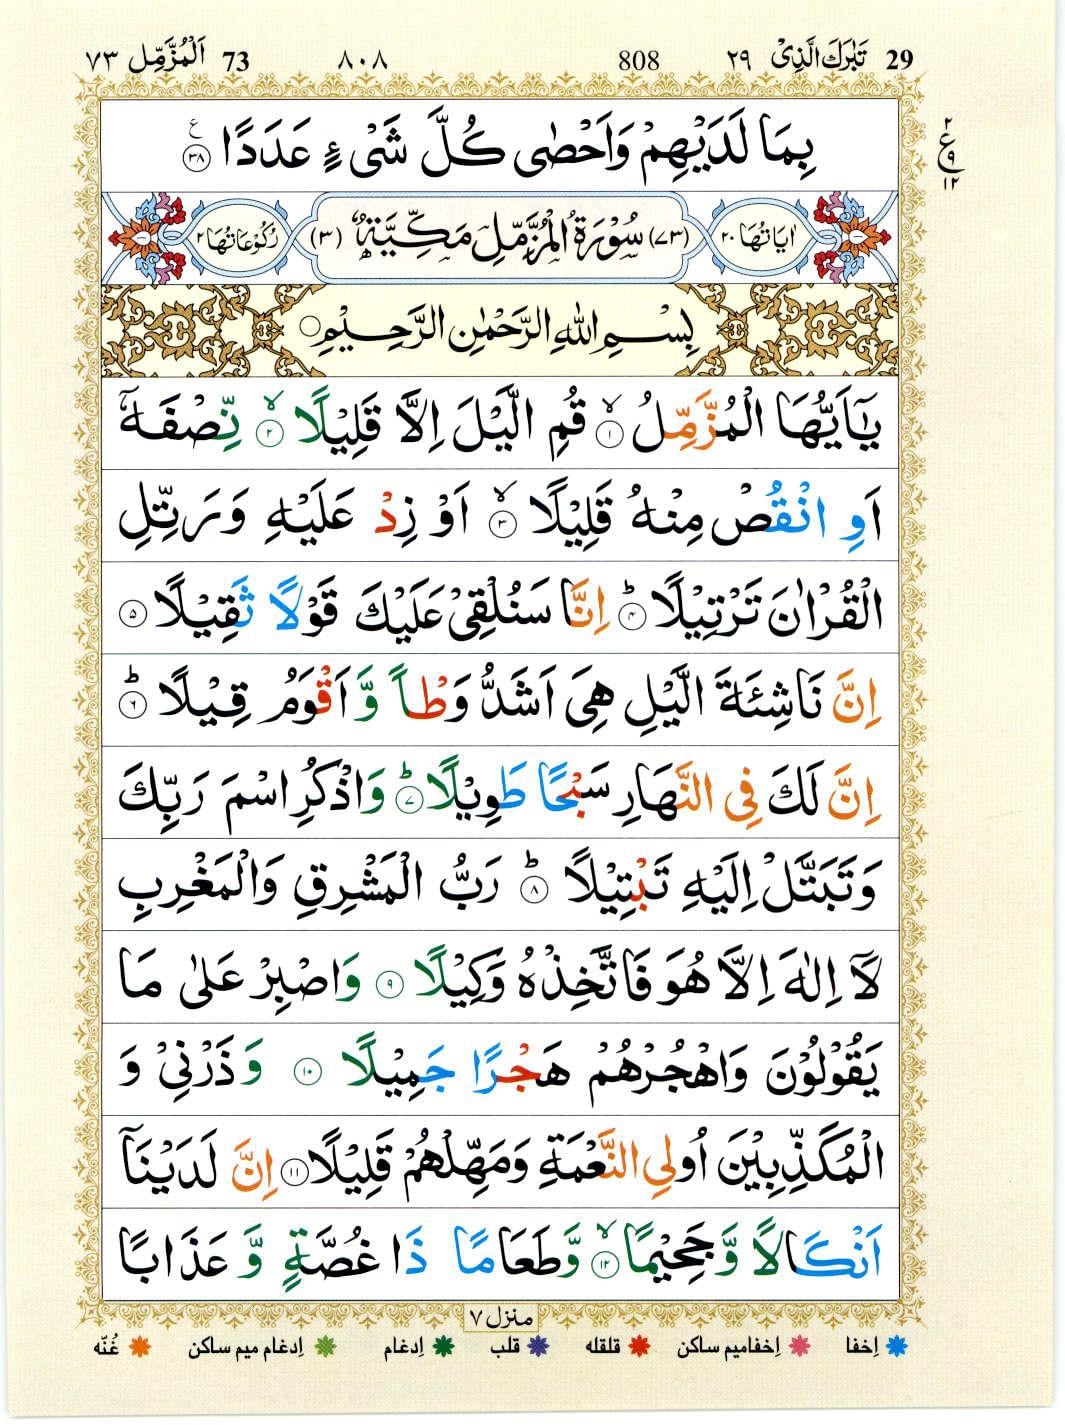 29 تَبٰرَكَ الَّذِیْ ۲۹ 808 ۸۰۸ 73 اَلْمُزَّمِّل ۷۳
بِمَا لَدَیْهِمْ وَاَحْصٰی كُلَّ شَیْءٍ عَدَدًا ۲۸ ع
۲
ع
۹
۱۲
اٰیَاتُهَا ۲۰ (۷۳) سُوْرَةُ الْمُزَّمِّلِ مَكِّیَّةٌ (۳) رُكُوْعَاتُهَا ۲
بِسْمِ اللهِ الرَّحْمٰنِ الرَّحِیْمِ
یٰۤاَیُّهَا الْمُزَّمِّلُ ۱ۙ قُمِ الَّیْلَ اِلَّا قَلِیْلًا ۲ۙ نِّصْفَهٗۤ
اَوِ انْقُصْ مِنْهُ قَلِیْلًا ۳ۙ اَوْ زِدْ عَلَیْهِ وَرَتِّلِ
الْقُرْاٰنَ تَرْتِیْلًا ۴ؕ اِنَّا سَنُلْقِیْ عَلَیْكَ قَوْلًا ثَقِیْلًا ۵
اِنَّ نَاشِئَةَ الَّیْلِ هِیَ اَشَدُّ وَطْاً وَّ اَقْوَمُ قِیْلًا ۶ؕ
اِنَّ لَكَ فِی النَّهَارِ سَبْحًا طَوِیْلًا ۷ؕ وَاذْكُرِ اسْمَ رَبِّكَ
وَتَبَتَّلْ اِلَیْهِ تَبْتِیْلًا ۸ؕ رَبُّ الْمَشْرِقِ وَالْمَغْرِبِ
لَاۤ اِلٰهَ اِلَّا هُوَ فَاتَّخِذْهُ وَكِیْلًا ۹ وَاصْبِرْ عَلٰی مَا
یَقُوْلُوْنَ وَاهْجُرْهُمْ هَجْرًا جَمِیْلًا ۱۰ وَذَرْنِیْ وَ
الْمُكَذِّبِیْنَ اُولِی النَّعْمَةِ وَمَهِّلْهُمْ قَلِیْلًا ۱۱ اِنَّ لَدَیْنَاۤ
اَنْكَالًا وَّ جَحِیْمًا ۱۲ۙ وَّ طَعَامًا ذَا غُصَّةٍ وَّ عَذَابًا
منزل ۷
اِخفا اِخفامیم ساكن قلقله قلب اِدغام اِدغام میم ساكن غُنّه